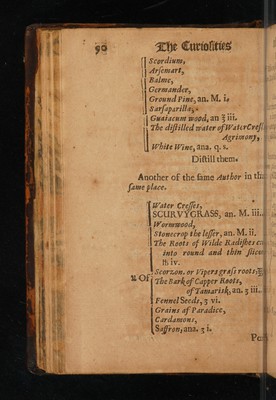 90 The Curiosities
Scordium,
Arsemart,
Balme,
Germander,
Ground Pine, an. M. i.
Sarsaparilla,
Guaiacum wood, an ℥ iii.
The distilled water of Water Cress
Agrimony,
White Wine, ana. q. s.
Distill them.
Another of the same Author in the
same place.
Water Cresses,
SCURVYGRASS, an. M. iii.
Wormwood,
Stonecrop the lesser, an. M. ii.
The Roots of Wilde Radishes
into round and thin
℔ iv.
℞ Of
Scorzon. or Vipers grass roots,
The Bark of Capper Roots,
of Tamarisk, an. ʒ iii.
Fennel Seeds, ʒ vi.
Grains of Paradice,
Cardamons,
Saffron, ana. ʒ i.